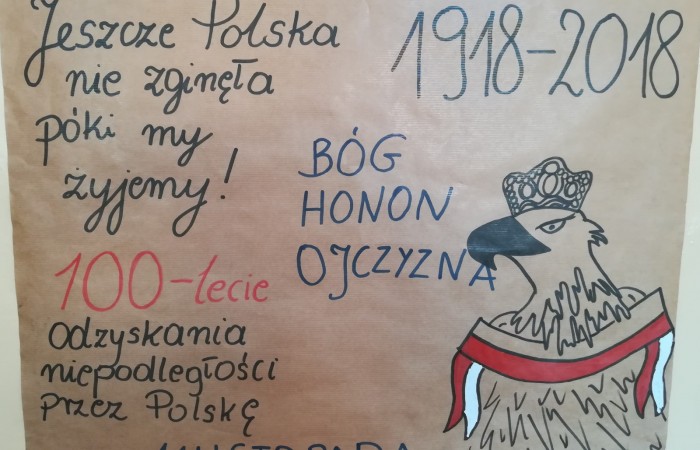 Jeszcze Polska
nie zginęła
póki my
żyjemy!
1918-2018
BÓG
HONON
OJCZYZNA
100-lecie
odzyskania
niepodległości
przez Polskę